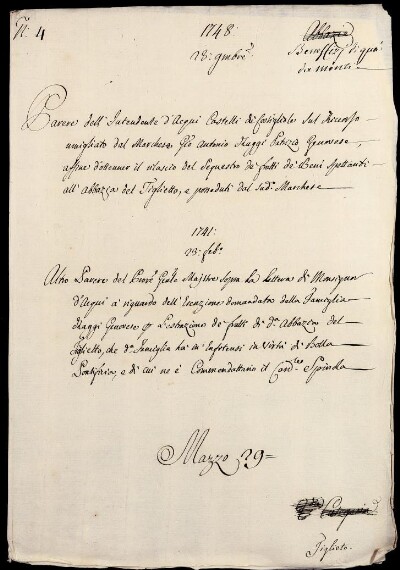 N.° 4
1748
28: 9mbre.
Abbazia
Beneficij di quà
da monti
Parere dell'Intendente d'Acqui Castelli di Costigliole sul Ricorso
umigliato dal Marchese Gio Antonio Raggi Patrizio Genovese,
affine d'ottener il rilascio del Sequestro de' frutti de' Beni spettanti
all'Abbazia del Tiglietto, e posseduti dal sud.° Marchese
1741:
23: feb.°
Altro Parere del Sopra la Lettera di Monsignor
d'Acqui à riguardo dell'Esenzione domandata dalla Famiglia
Raggi Genovese p l'estrazione de' frutti di d.a Abbazia del
Tiglietto, che d.a Famiglia hà in Infeteusi in virtù di Bolla
Pontificia, e di cui ne è Commendattario il Card.le Spinola
Mazzo 29=
Tiglieto.